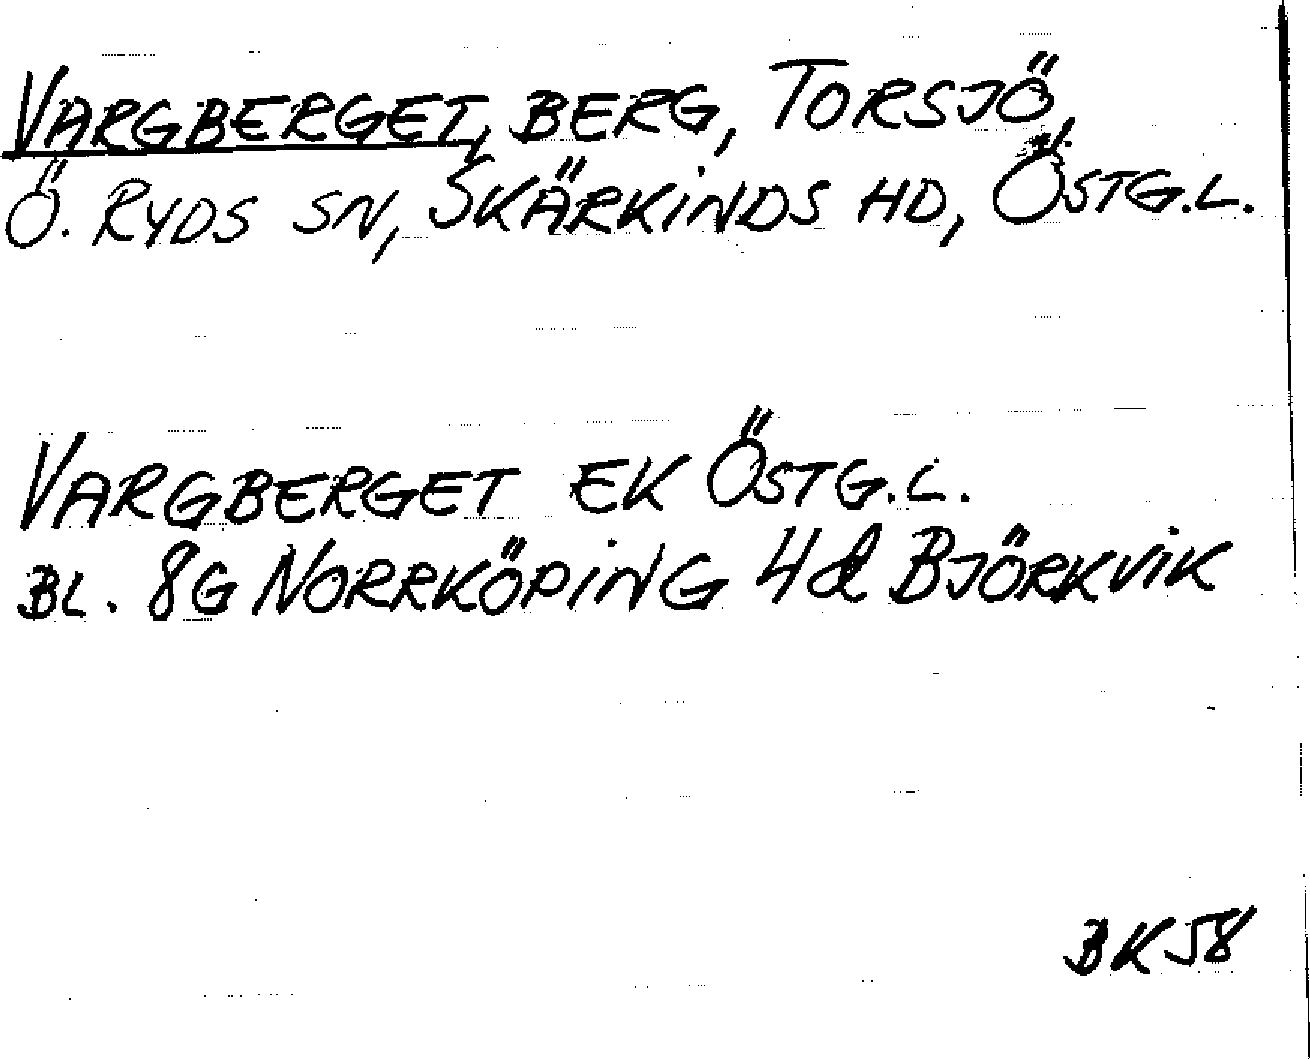 VARGBERGET, BERG, TORSJÖ,
Ö. RYDS SN, SKÄRKINDS HD, ÖSTG.L.
VARGBERGET EK ÖSTG.L.
BL. 8G NORRKÖPING 4d BJÖRKVIK
BK 58